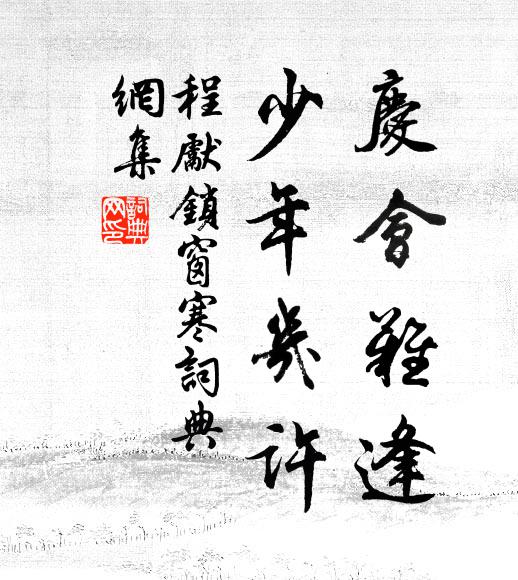 慶會難逢
少年幾許
程獻鎖窗寒詞典
網集
詞典
网印